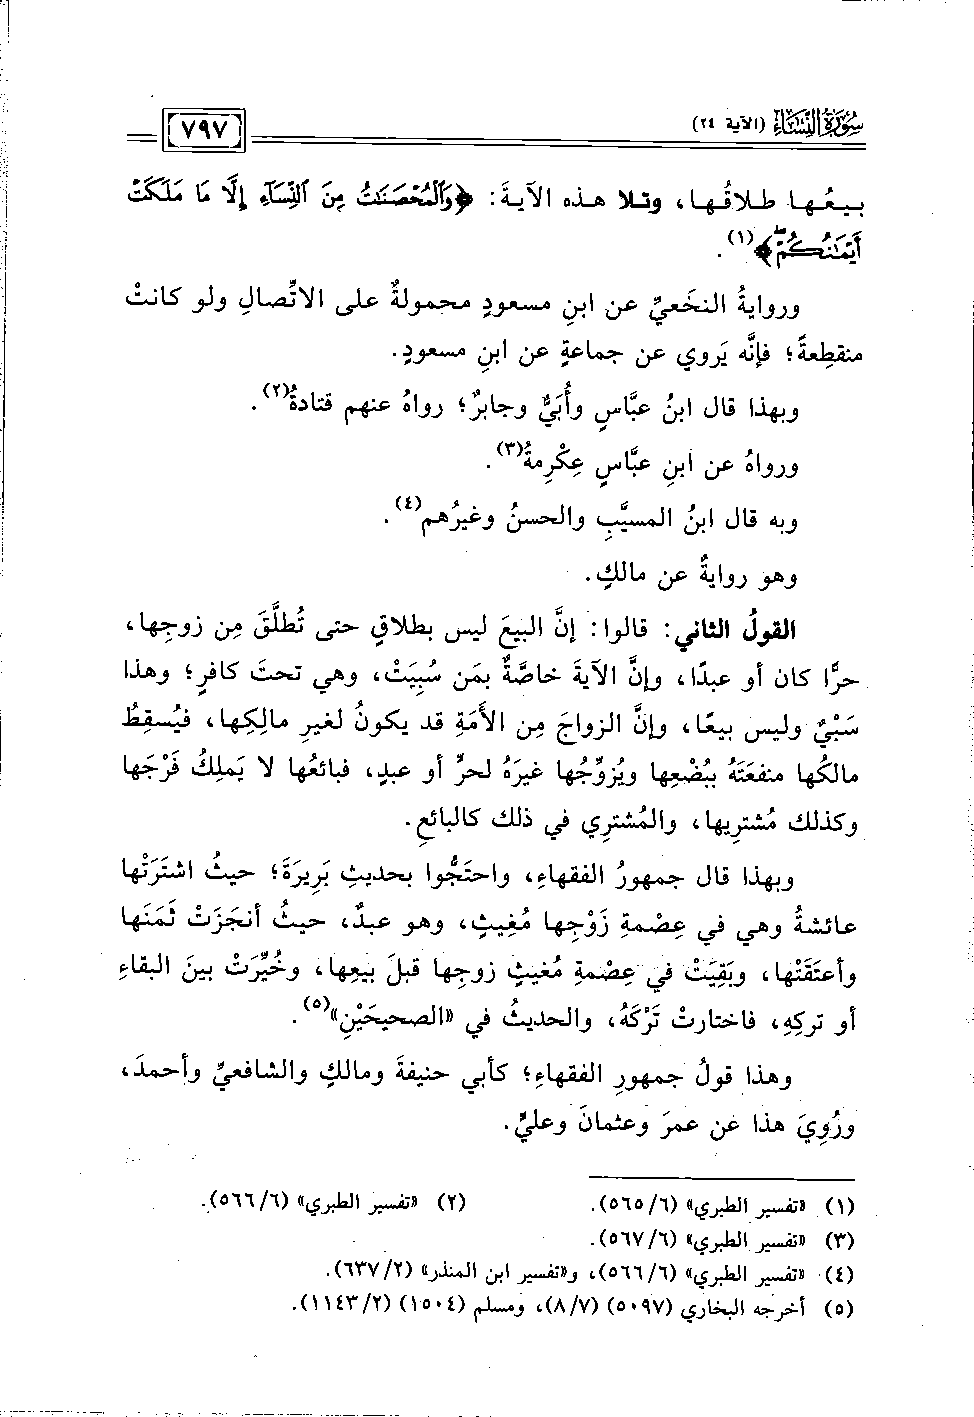 سُورَةُ النِّسَاءِ (الآية ٢٤)
٧٩٧
بيعُها طلاقُها، وتلا هذه الآيةَ: ﴿وَٱلْمُحْصَنَٰتُ مِنَ ٱلنِّسَآءِ إِلَّا مَا مَلَكَتْ
أَيْمَٰنُكُمْۖ﴾(١).
وروايةُ النخَعيِّ عن ابنِ مسعودٍ محمولةٌ على الاتِّصالِ ولو كانتْ
منقطِعةً؛ فإنَّه يَروي عن جماعةٍ عن ابنِ مسعودٍ.
وبهذا قال ابنُ عبَّاسٍ وأُبَيٌّ وجابرٌ؛ رواهُ عنهم قتادةُ(٢).
ورواهُ عن ابنِ عبَّاسٍ عِكْرِمةُ(٣).
وبه قال ابنُ المسيَّبِ والحسنُ وغيرُهم(٤).
وهو روايةٌ عن مالكٍ.
القولُ الثاني: قالوا: إنَّ البيعَ ليس بطلاقٍ حتى تُطلَّقَ مِن زوجِها،
حرًّا كان أو عبدًا، وإنَّ الآيةَ خاصَّةٌ بمَن سُبِيَتْ، وهي تحتَ كافرٍ؛ وهذا
سَبْيٌ وليس بيعًا، وإنَّ الزواجَ مِن الأَمَةِ قد يكونُ لغيرِ مالِكِها، فيُسقِطُ
مالكُها منفعَتَهُ ببُضْعِها ويُزوِّجُها غيرَهُ لحرٍّ أو عبدٍ، فبائعُها لا يَملِكُ فَرْجَها
وكذلك مُشترِيها، والمُشترِي في ذلك كالبائعِ.
وبهذا قال جمهورُ الفقهاءِ، واحتَجُّوا بحديثِ بَرِيرَةَ؛ حيثُ اشتَرَتْها
عائشةُ وهي في عِصْمةِ زَوْجِها مُغِيثٍ، وهو عبدٌ، حيثُ أنجَزَتْ ثَمَنَها
وأعتَقَتْها، وبَقِيَتْ في عِصْمةِ مُغيثٍ زوجِها قبلَ بيعِها، وخُيِّرَتْ بينَ البقاءِ
أو تركِهِ، فاختارتْ تَرْكَهُ، والحديثُ في «الصحيحَيْنِ»(٥).
وهذا قولُ جمهورِ الفقهاءِ؛ كأبي حنيفةَ ومالكٍ والشافعيِّ وأحمدَ،
ورُوِيَ هذا عن عمرَ وعثمانَ وعليٍّ.
(١) «تفسير الطبري» (٦/ ٥٦٥). (٢) «تفسير الطبري» (٦/ ٥٦٦).
(٣) «تفسير الطبري» (٦/ ٥٦٧).
(٤) «تفسير الطبري» (٦/ ٥٦٦)، و«تفسير ابن المنذر» (٢/ ٦٣٧).
(٥) أخرجه البخاري (٥٠٩٧) (٧/ ٨)، ومسلم (١٥٠٤) (٢/ ١١٤٣).